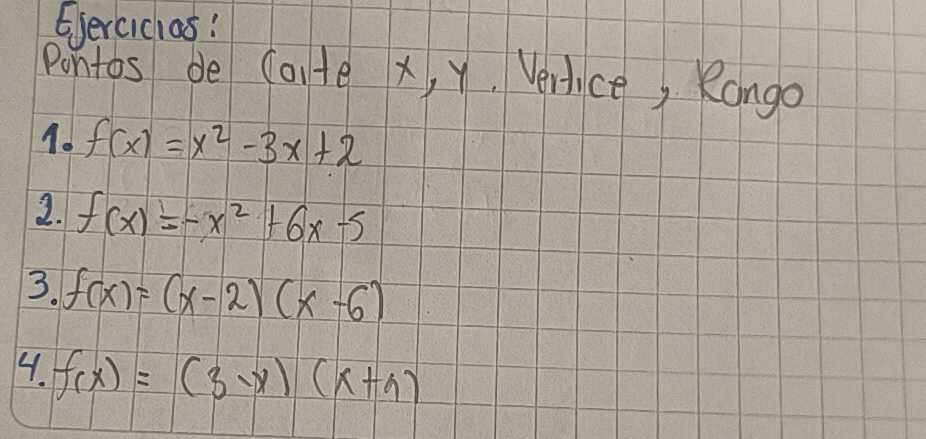 Ejercicios:
Puntos de Corte x, y. Vertice, Rango
1. f(x) = x² - 3x + 2
2. f(x) = -x² + 6x - 5
3. f(x) = (x - 2) (x - 6)
4. f(x) = (3 - x)